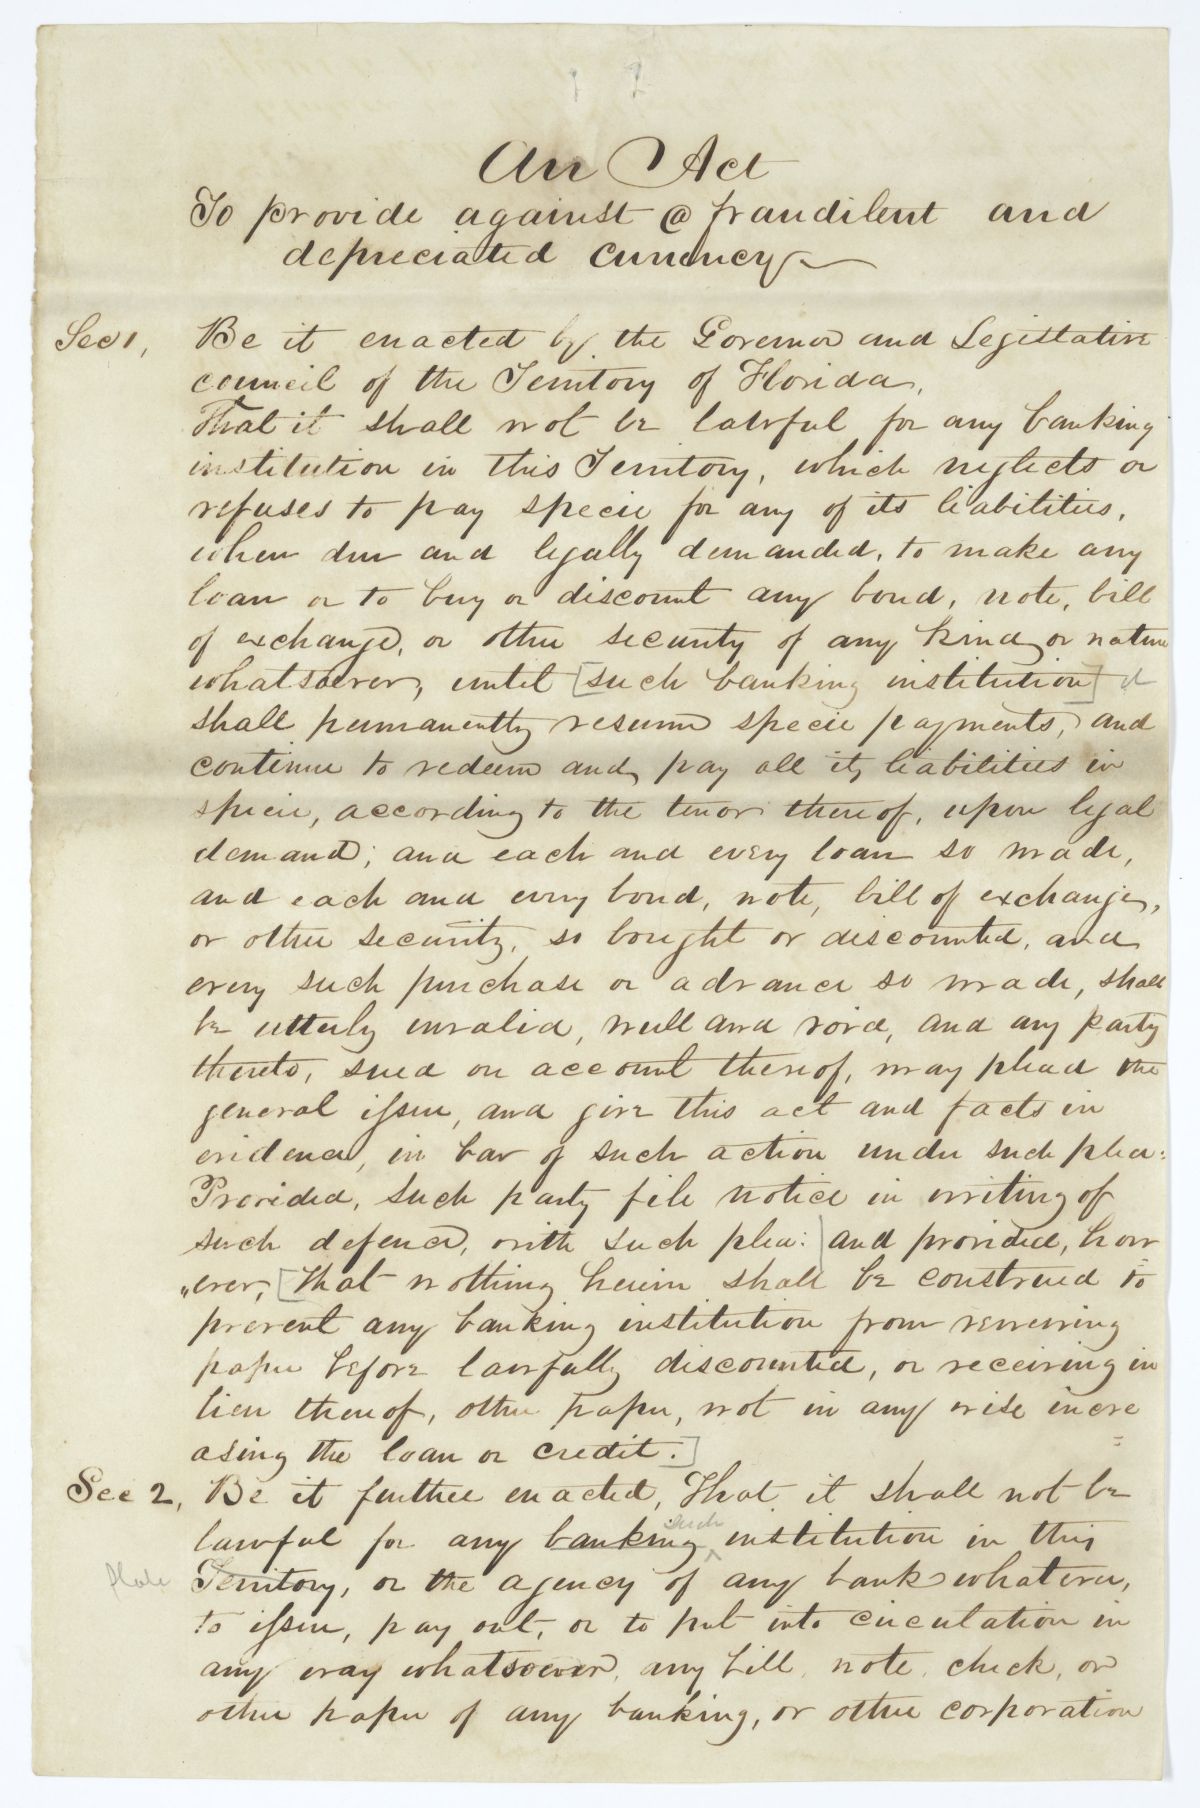 1 2
An Act
To provide against @ fraudilent and
depreciated currency
Sec 1, Be it enacted by the Governor and Legislative
council of the Territory of Florida,
That it shall not be lawful for any banking
institution in this Territory, which neglects or
refuses to pay specie for any of its liabilities,
when due and legally demanded, to make any
loan or to buy or discount any bond, note, bill
of exchange, or other security of any kind or nature
whatsoever, until [such banking institution] it
shall permanently resume specie payments, and
continue to redeem and pay all its liabilities in
specie, according to the tenor thereof, upon legal
demand; and each and every loan so made,
and each and every bond, note, bill of exchange,
or other security, so bought or discounted, and
every such purchase or advance so made, shall
be utterly invalid, null and void, and any party
thereto, sued on account thereof, may plead the
general issue, and give this act and facts in
evidence, in bar of such action under such plea:
Provided, such party file notice in writing of
such defence, with such plea: ] and provided, how
"ever, [that nothing herein shall be construed to
prevent any banking institution from renewing
paper before lawfully discounted, or receiving in
lieu thereof, other paper, not in any wise incre=
asing the loan or credit.]
Sec 2, Be it further enacted, That it shall not be
lawful for any banking such institution in this
State Territory, or the agency of any bank whatever,
to issue, pay out, or to put into circulation in
any way whatsoever, any bill, note, check, or
other paper of any banking, or other corporation